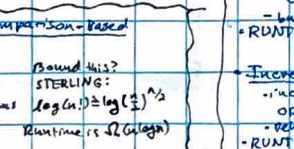 mparison-Based
Bound this?
STERLING:
log(n!) ≥ log(n/2)^n/2
Runtime is Ω(nlogn)
• RUNT
• Incre
• RUNT